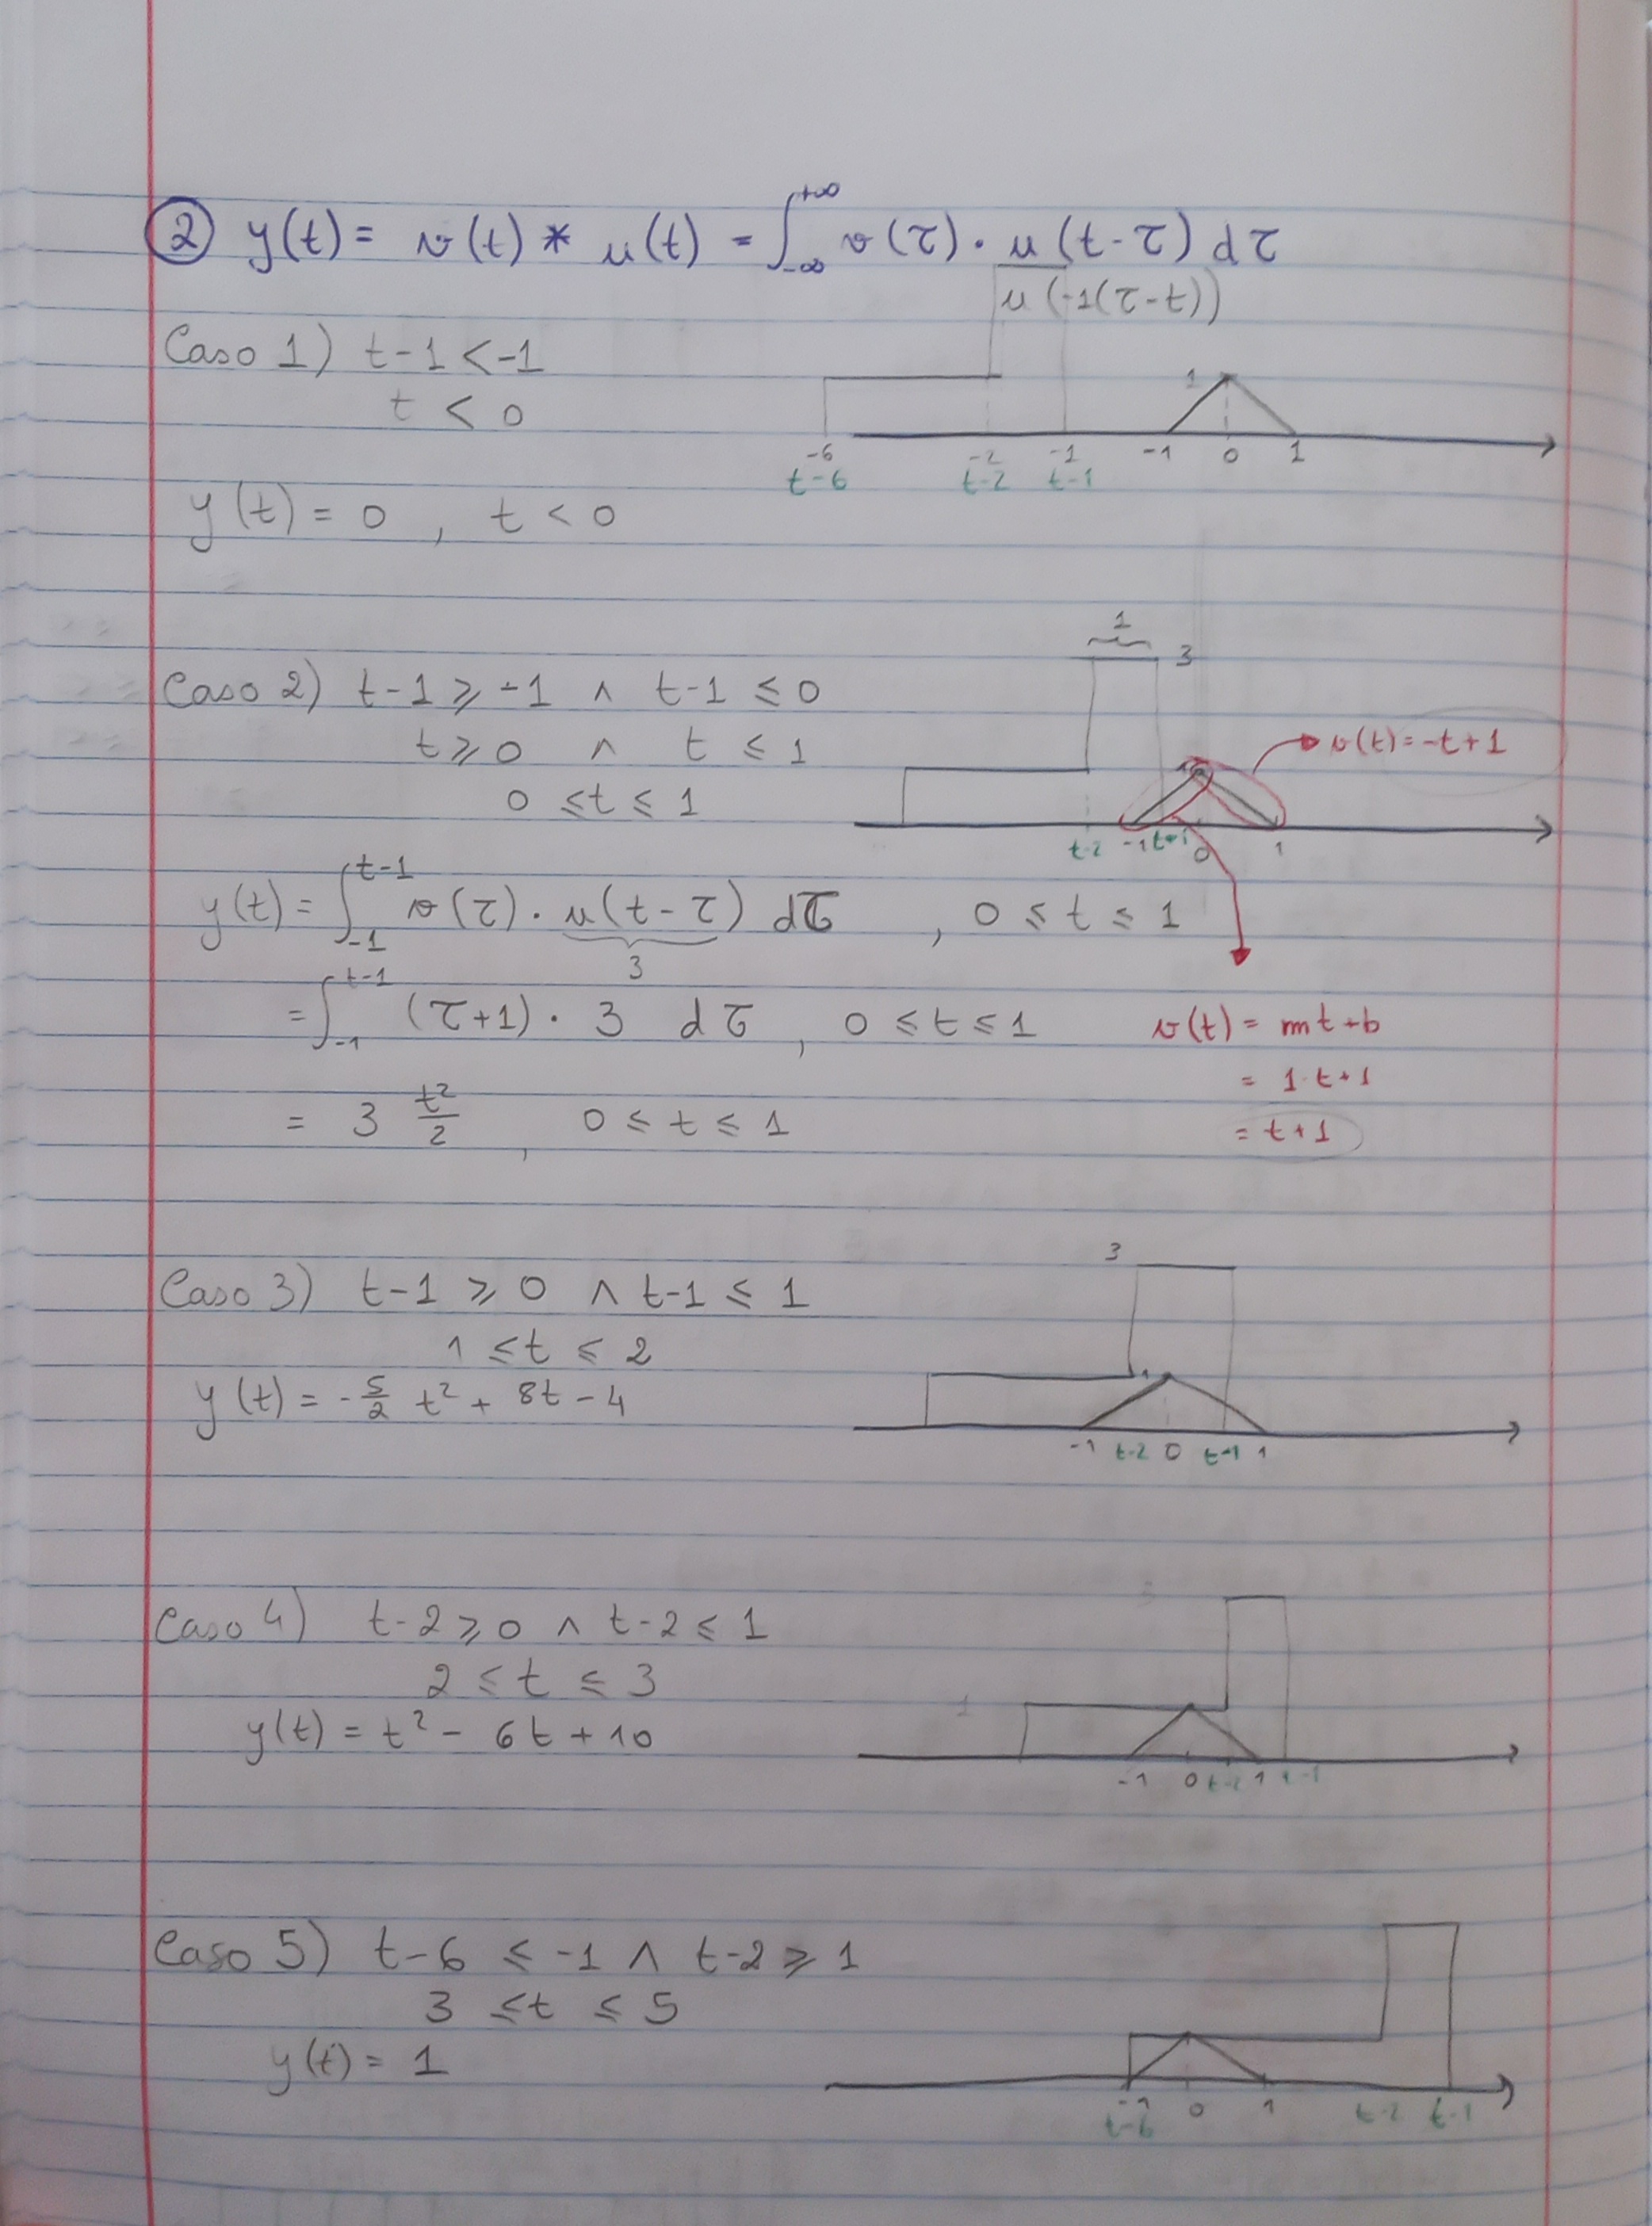 ② y(t) = v(t) * u(t) = ∫_{-∞}^{+∞} v(τ) · u(t-τ) dτ
u(-1(τ-t))
Caso 1) t-1 < -1
t < 0
1
-6 -2 -1 -1 0 1
t-6 t-2 t-1
y(t) = 0 , t < 0
1
3
Caso 2) t-1 ⩾ -1 ∧ t-1 ⩽ 0
v(t) = -t+1
t ⩾ 0 ∧ t ⩽ 1
0 ⩽ t ⩽ 1
1
t-2 -1 t-1 0 1
y(t) = ∫_{-1}^{t-1} v(τ) · u(t-τ) dτ , 0 ⩽ t ⩽ 1
3
= ∫_{-1}^{t-1} (τ+1) · 3 dτ , 0 ⩽ t ⩽ 1
v(t) = mt+b
= 1·t+1
= 3 t²/2 , 0 ⩽ t ⩽ 1
= t+1
3
Caso 3) t-1 ⩾ 0 ∧ t-1 ⩽ 1
1 ⩽ t ⩽ 2
y(t) = -5/2 t² + 8t - 4
-1 t-2 0 t-1 1
3
Caso 4) t-2 ⩾ 0 ∧ t-2 ⩽ 1
2 ⩽ t ⩽ 3
1
y(t) = t² - 6t + 10
-1 0 t-2 1 t-1
Caso 5) t-6 ⩽ -1 ∧ t-2 ⩾ 1
3 ⩽ t ⩽ 5
y(t) = 1
-1 0 1 t-2 t-1
t-6